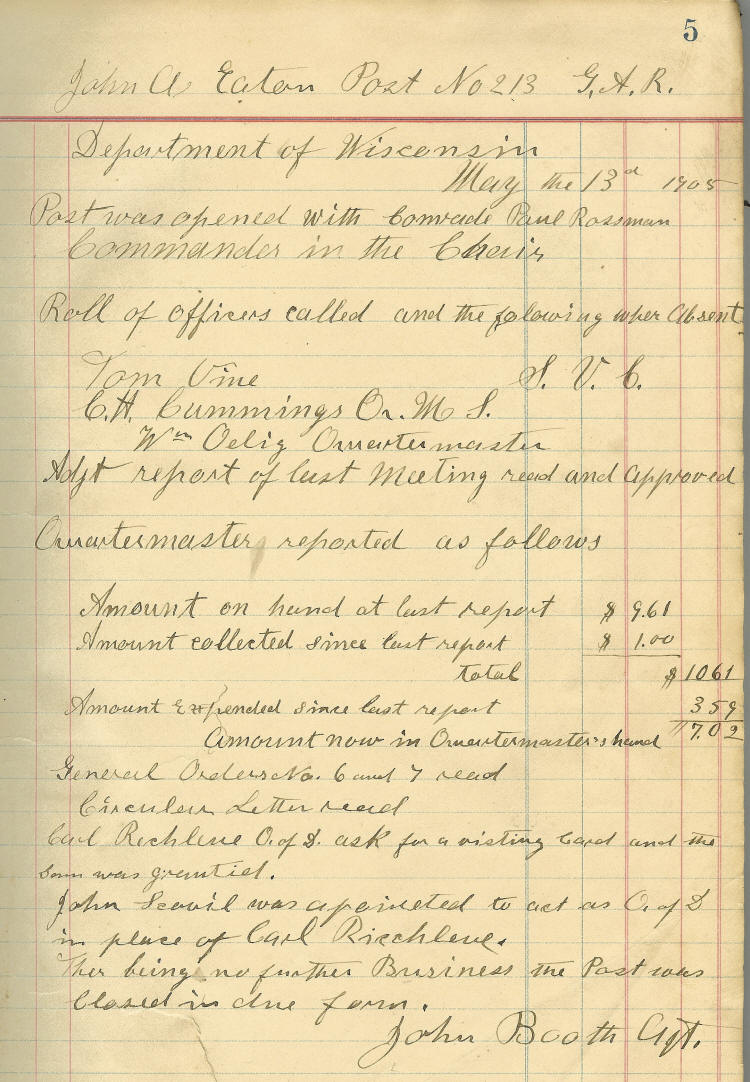 5
John A Eaton Post No 213 G.A.R.
Department of Wisconsin
May the 13d 1905
Post was opened with Comrade Paul Rossman
Commander in the Chair
Roll of officers called and the folowing wher Absent
Tom Vine S. V. C.
C.H. Cummings Qr. M S.
Wm Oelig Quartermaster
Adjt report of last Meeting read and approved
Quartermaster reported as follows
Amount on hand at last report $ 9.61
Amount collected since last report $ 1.00
total $ 1061
Amount Expended since last report 359
Amount now in Quartermaster's hand " 7.02
General Orders No. 6 and 7 read
Circular Letter read
Carl Rechlene O. of D. ask for a visting Card and the
Sam was grantied.
John Scovil was apointed to act as O. of D
in place of Carl Riechlene.
Ther being no further Business the Post was
Closed in due form.
John Booth Agt.